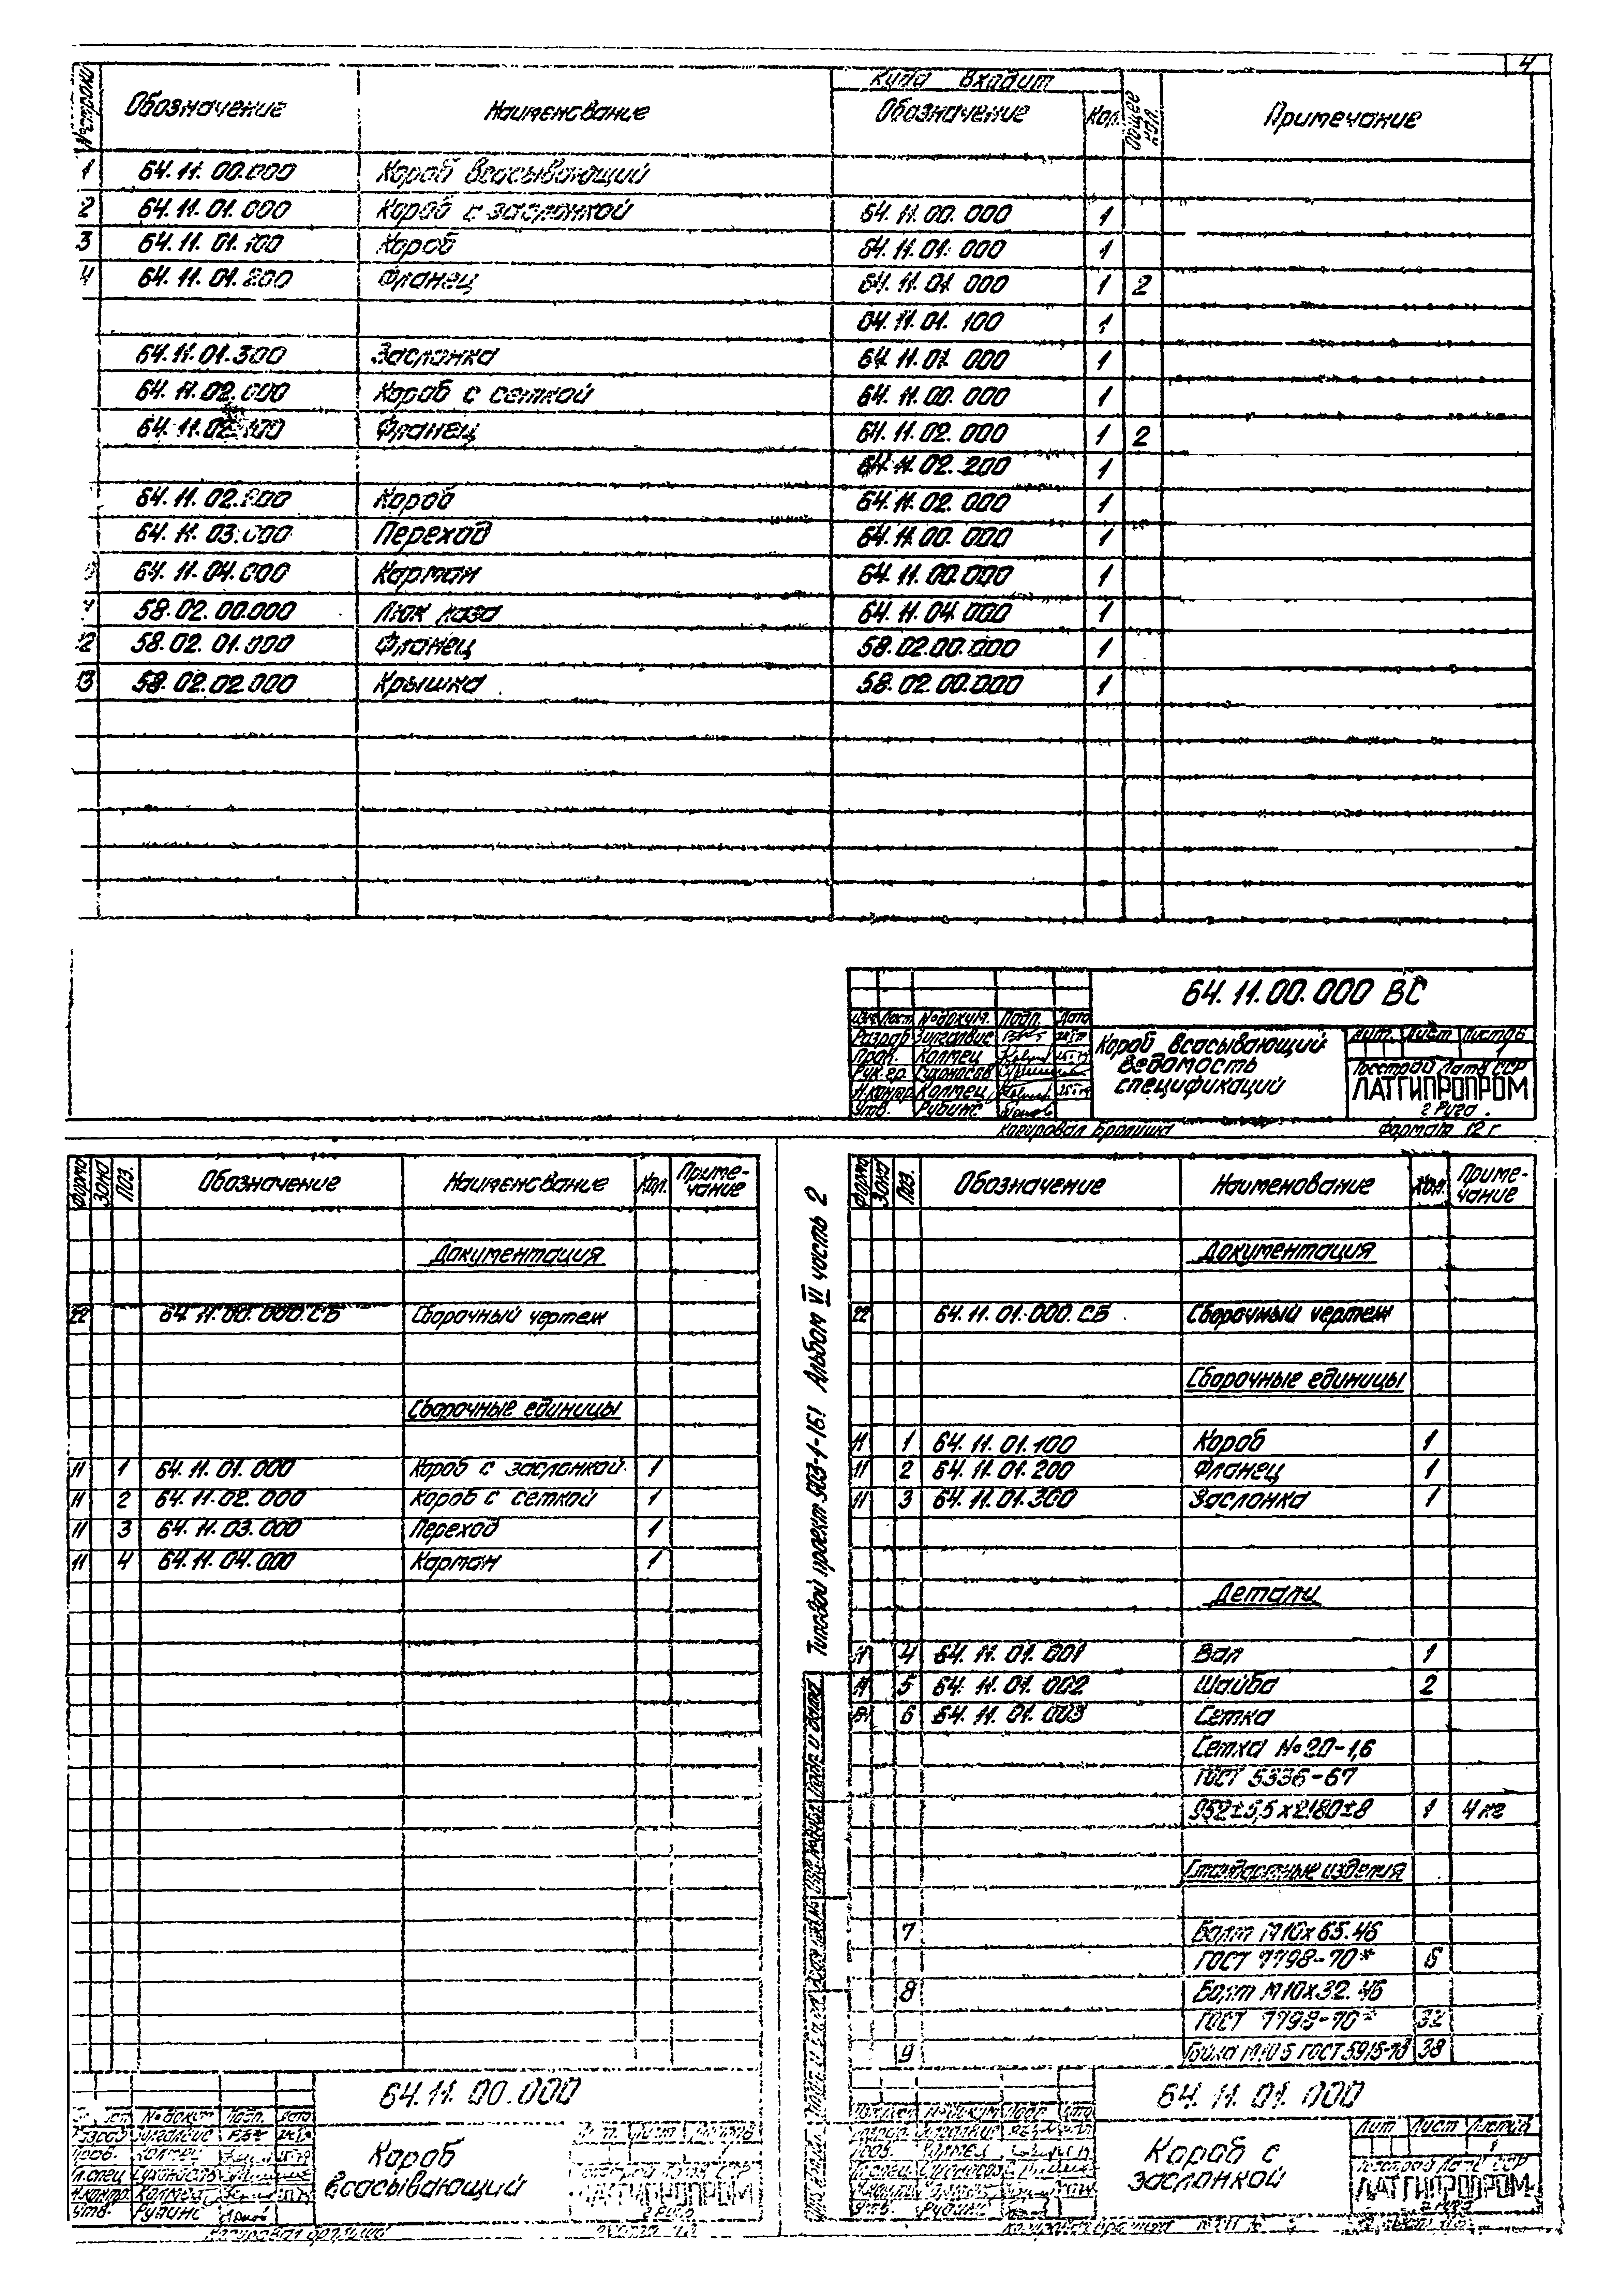 4
№ строки Обозначение Наименование Куда входит Общее кол. Примечание
Обозначение Кол.
1 64.11.00.000 Короб всасывающий
2 64.11.01.000 Короб с заслонкой 64.11.00.000 1
3 64.11.01.100 Короб 64.11.01.000 1
4 64.11.01.200 Фланец 64.11.01.000 1 2
64.11.01.100 1
64.11.01.300 Заслонка 64.11.01.000 1
64.11.02.000 Короб с сеткой 64.11.00.000 1
64.11.02.100 Фланец 64.11.02.000 1 2
64.11.02.200 1
64.11.02.200 Короб 64.11.02.000 1
64.11.03.000 Переход 64.11.00.000 1
64.11.04.000 Карман 64.11.00.000 1
58.02.00.000 Люк лаза 64.11.04.000 1
12 58.02.01.000 Фланец 58.02.00.000 1
13 58.02.02.000 Крышка 58.02.00.000 1
64.11.00.000 ВС
Изм. Лист № докум. Подп. Дата
Разраб Зирголвис
Пров. Калмец
Рук.гр. Сухоносов
Н.контр. Калмец
Утв. Рубинс
Короб всасывающий
ведомость
спецификаций
Лит. Лист Листов
1
Госстрой Латв ССР
ЛАТГИПРОПРОМ
г. Рига
Копировал Формат 12 г
Форма Зона Поз. Обозначение Наименование Кол. Приме-
чание
Документация
22 64.11.00.000.СБ Сборочный чертеж
Сборочные единицы
11 1 64.11.01.000 Короб с заслонкой 1
11 2 64.11.02.000 Короб с сеткой 1
11 3 64.11.03.000 Переход 1
11 4 64.11.04.000 Карман 1
64.11.00.000
Короб
всасывающий
Утв. Рубинс
ЛАТГИПРОПРОМ
Типовой проект 903-1-161 Альбом VI часть 2
Форма Зона Поз. Обозначение Наименование Кол. Приме-
чание
Документация
22 64.11.01.000.СБ Сборочный чертеж
Сборочные единицы
11 1 64.11.01.100 Короб 1
11 2 64.11.01.200 Фланец 1
11 3 64.11.01.300 Заслонка 1
Детали
4 64.11.01.001 Вал 1
5 64.11.01.002 Шайба 2
6 64.11.01.003 Сетка
Сетка №20-1,6
ГОСТ 5336-67
952±5,5х2180±8 1 4 кг
Стандартные изделия
7 Болт М10х65.46
ГОСТ 7798-70* 6
8 Болт М10х32.46
ГОСТ 7798-70* 32
9 Гайка М10.5 ГОСТ 5915-70* 38
64.11.01.000
Короб с
заслонкой
Лит Лист Листов
1
Госстрой Латв ССР
ЛАТГИПРОПРОМ
г. Рига